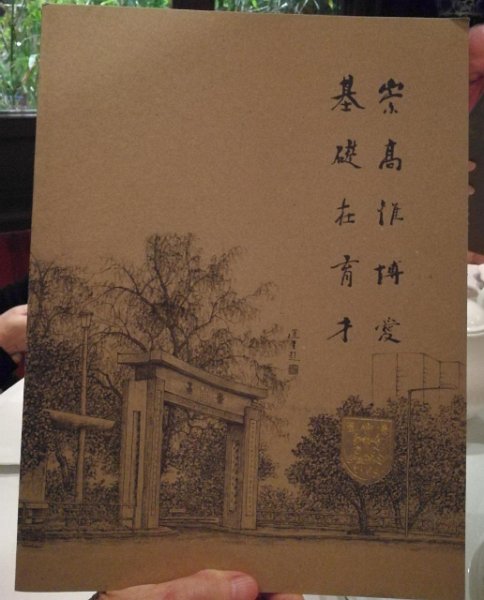 崇高惟博愛
基礎在育才